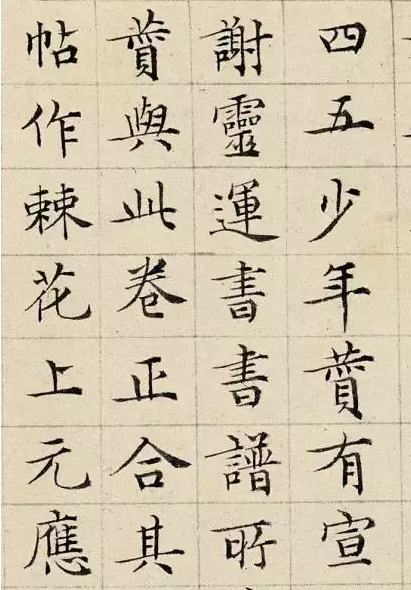 四五少年贊有宣
謝靈運書書譜所
贊與此卷正合其
帖作棘花上元應